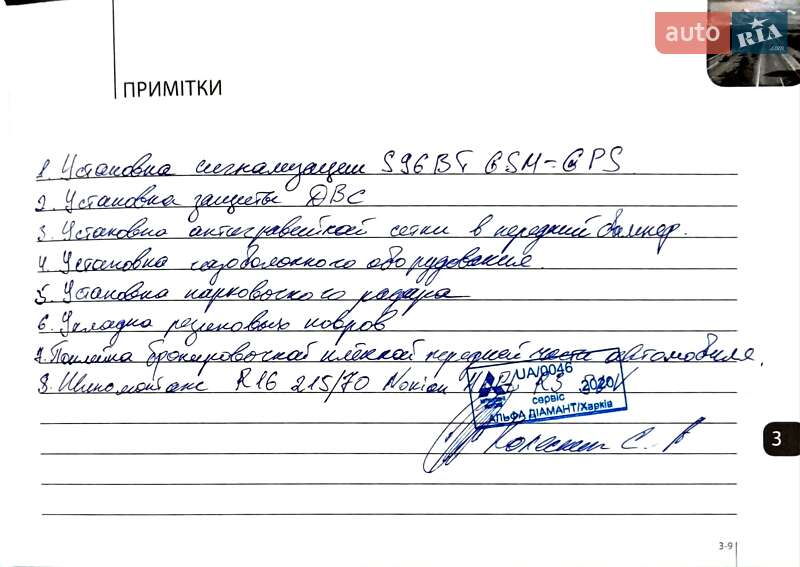 auto RIA.com
ПРИМІТКИ
1. Установка сигнализации S96BT GSM-GPS
2. Установка защиты ДВС
3. Установка антигравейной сетки в передний бампер.
4. Установка газобалонного оборудования.
5. Установка парковочного радара
6. Укладка резиновых ковров
7. Поклейка бронировочной плёнкой передней части автомобиля.
8. Шиномонтаж R16 215/70 Nokian
UA/0046
2020
сервіс
АЛЬФА ДІАМАНТ/Харків
3
3-9